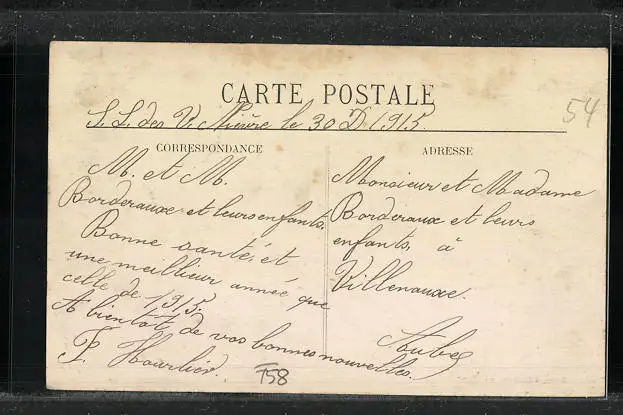 CARTE POSTALE
S. L. des V. Nièvre le 30 D 1915.
54
CORRESPONDANCE
M. et M.
Borderauxe et leurs enfants.
Bonne santé, et
une meilleur année que
celle de 1915.
A bientôt, de vos bonnes nouvelles.
F. Hourlier.
758
ADRESSE
Monsieur et Madame
Borderauxe et leurs
enfants, à
Villenauxe.
Aube